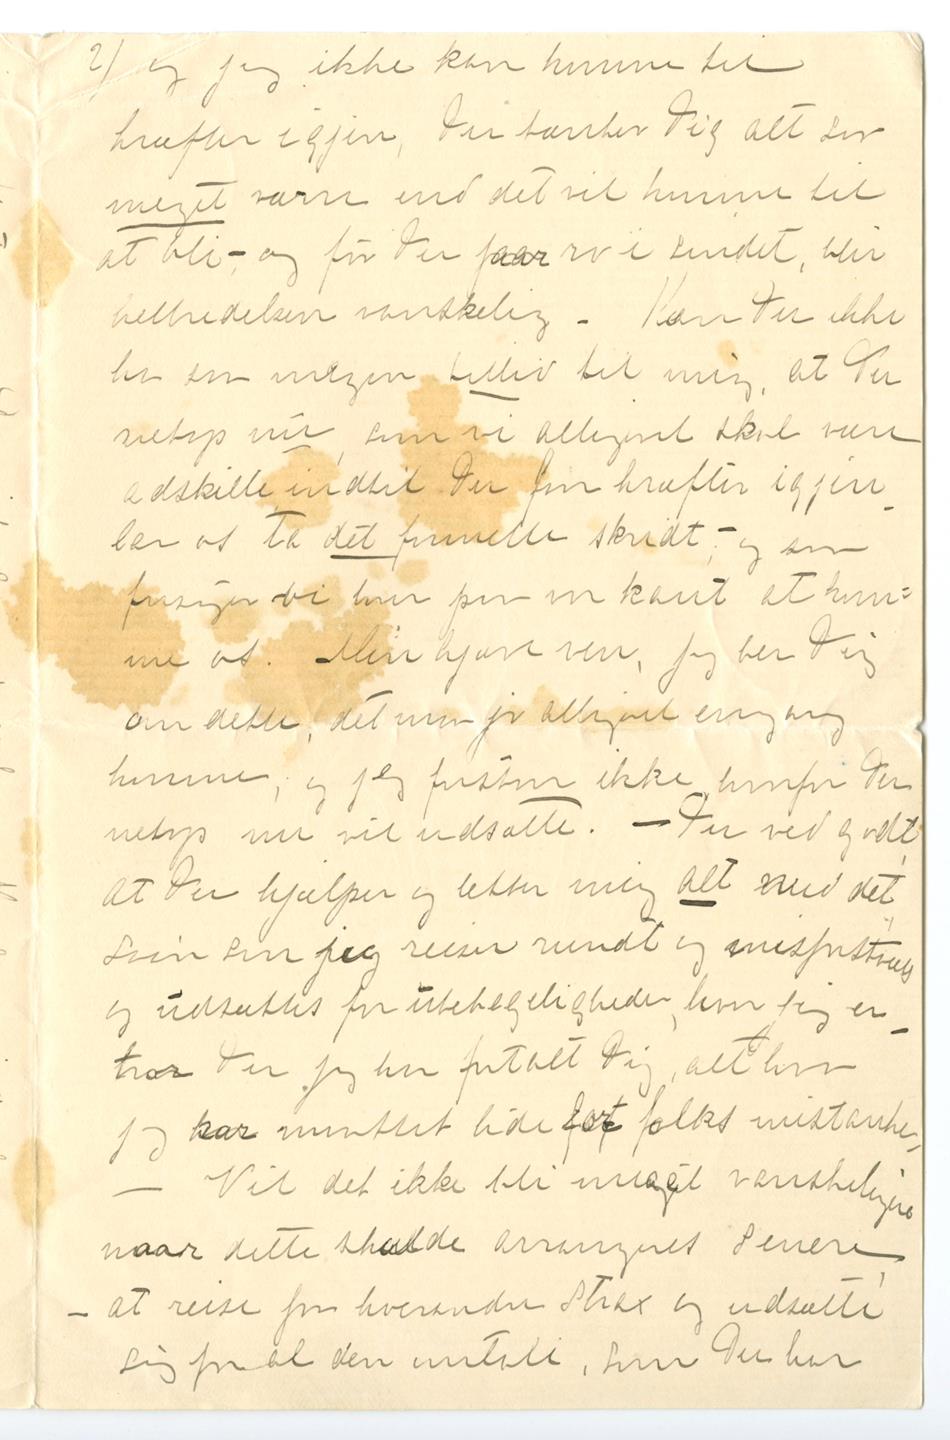 2/ og jeg ikke kan komme til
kræfter igjen, Du tænker Dig alt saa
meget værre end det vil komme til
at bli –, og før Du faar ro i sindet, blir
helbredelsen vanskelig – Kan Du ikke
ha saa megen tillid til mig, at Du
netop nu, som vi alligevel skal være
adskilte indtil Du faar kræfter igjen –
lar os ta det formelle skridt, – og saa
forsøger vi hver paa vor kant at kom=
me os. Min kjære ven, jeg ber Dig
om dette, det maa jo alligevel engang
komme, og jeg forstaar ikke hvorfor Du
netop nu vil udsætte. – Du ved godt,
at Du hjælper og letter mig alt med det,
som jeg reiser rundt og misforstaaes
og udsættes for ubehageligheder, hvor jeg er –
tror Du jeg har fortalt Dig, alt hvad
jeg har maattet lide fort folks mistanke,
– Vil det ikke bli meget vanskeligere
naar dette skulde arrangeres senere,
– at reise fra hverandre strax og udsætte
sig for al den omtale, som Du har